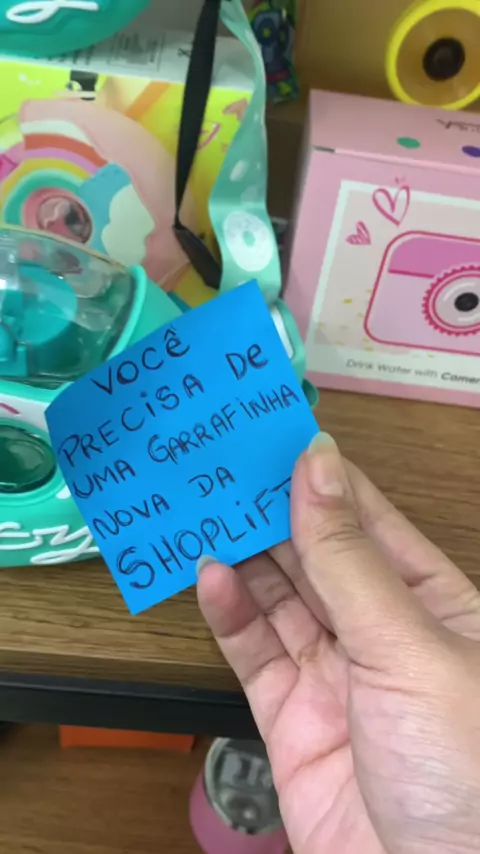 VOCÊ
PRECISA De
UMA GARRAFINHA
NOVA DA
SHOPLIFT
Drink Water with Camer